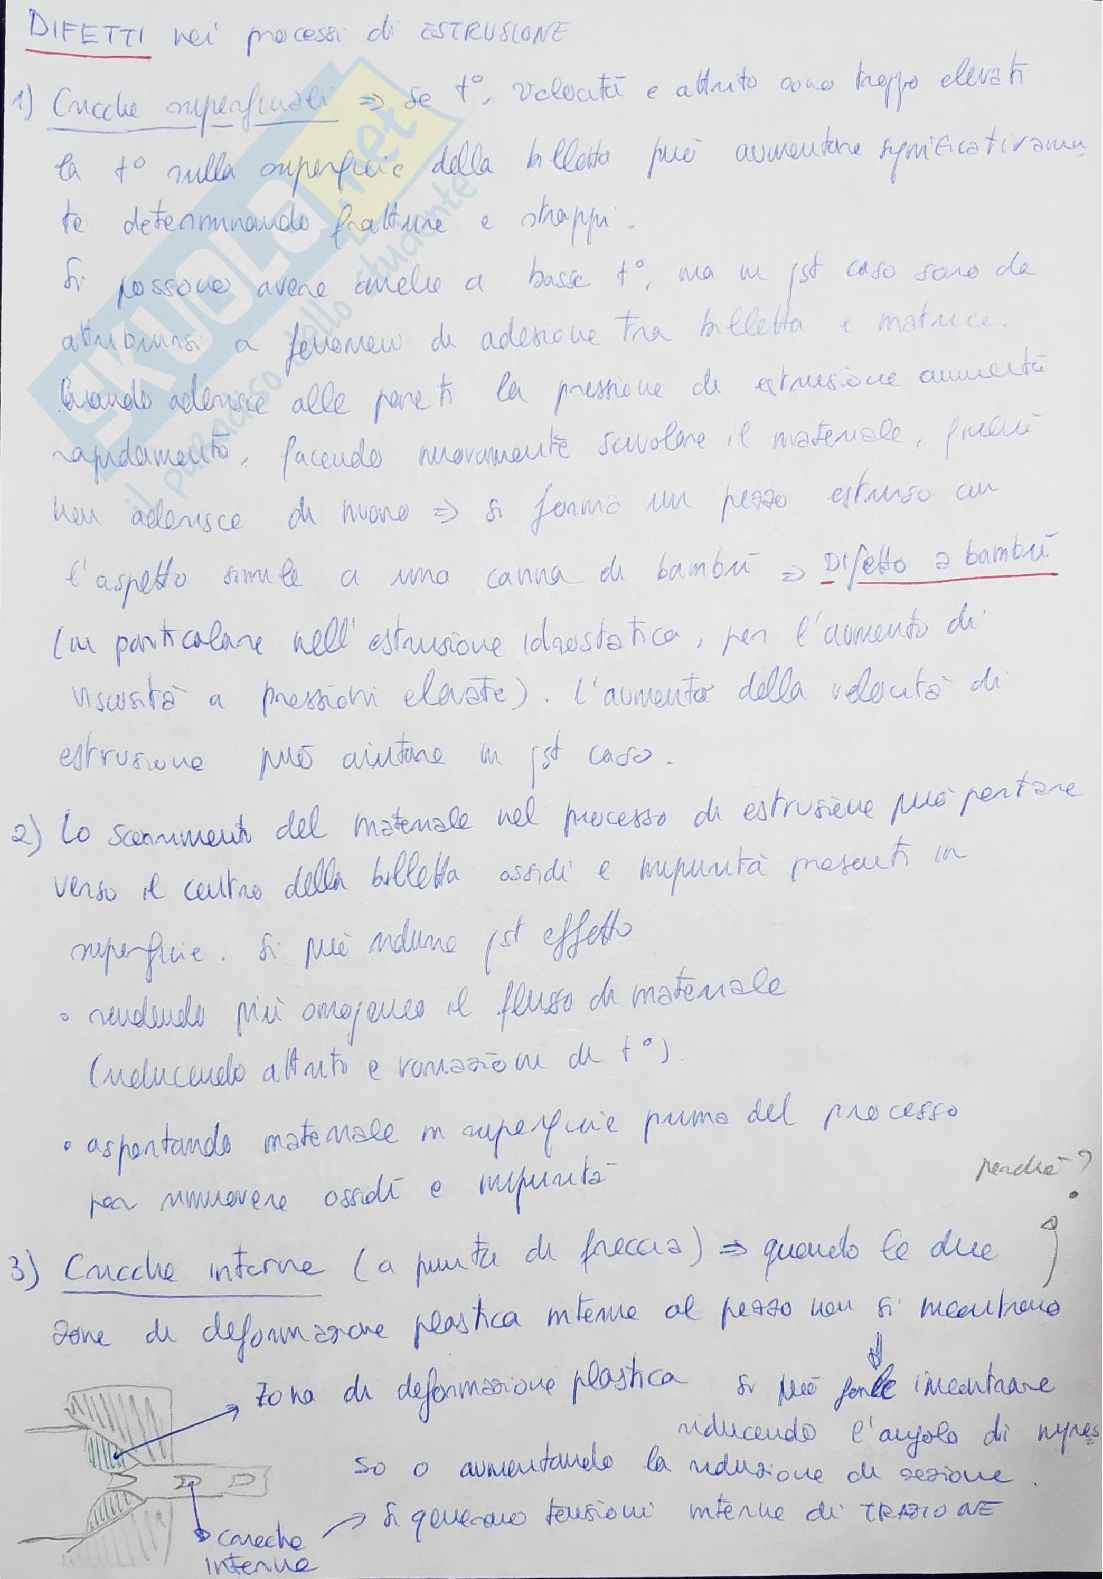 DIFETTI nei processi di ESTRUSIONE
1) Cricche superficiali => se t°, velocità e attrito sono troppo elevati
la t° sulla superficie della billetta può aumentare significativamen
te determinando fratture e strappi.
Si possono avere anche a basse t°, ma in qst caso sono da
attribuirsi a fenomeni di adesione tra billetta e matrice.
Quando aderisce alle pareti la pressione di estrusione aumenta
rapidamente, facendo nuovamente scivolare il materiale, finché
non aderisce di nuovo => si forma un pezzo estruso con
l'aspetto simile a una canna di bambù => Difetto a bambù
(in particolare nell'estrusione idrostatica, per l'aumento di
viscosità a pressioni elevate). L'aumento della velocità di
estrusione può aiutare in qst caso.
2) Lo scorrimento del materiale nel processo di estrusione può portare
verso il centro della billetta ossidi e impurità presenti in
superficie. Si può ridurre qst effetto
• rendendo più omogeneo il flusso di materiale
(riducendo attrito e variazioni di t°).
• asportando materiale in superficie prima del processo
per rimuovere ossidi e impurità
perché?
3) Cricche interne (a punta di freccia) => quando le due
zone di deformazione plastica interne al pezzo non si incontrano
Zona di deformazione plastica si può farle incontrare
riducendo l'angolo di ingres
so o aumentando la riduzione di sezione.
cricche interne → si generano tensioni interne di TRAZIONE
SKUOLA.net
il paradiso dello studente